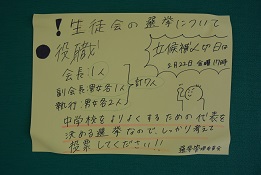 ！生徒会の選挙について
役職
会長：1人
副会長：男女各1人
執行：男女各2人
計7人
立候補〆切日は
2月22日 金曜 17時
中学校をよりよくするための代表を
決める選挙なので、しっかり考えて
投票してください！！
選挙管理委員会